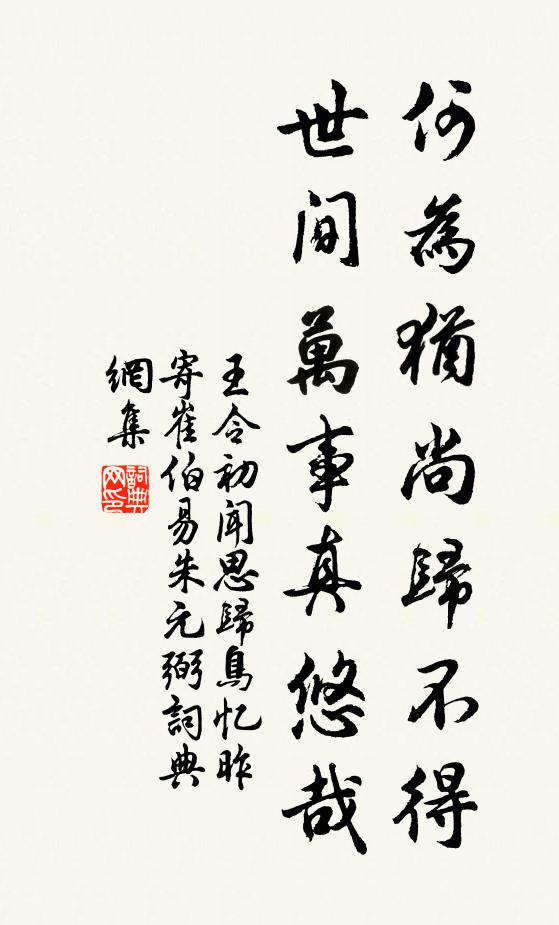 何為猶尚歸不得
世間萬事真悠哉
王令初聞思歸鳥忆昨
寄崔伯易朱元弼詞典
網集
詞典網印